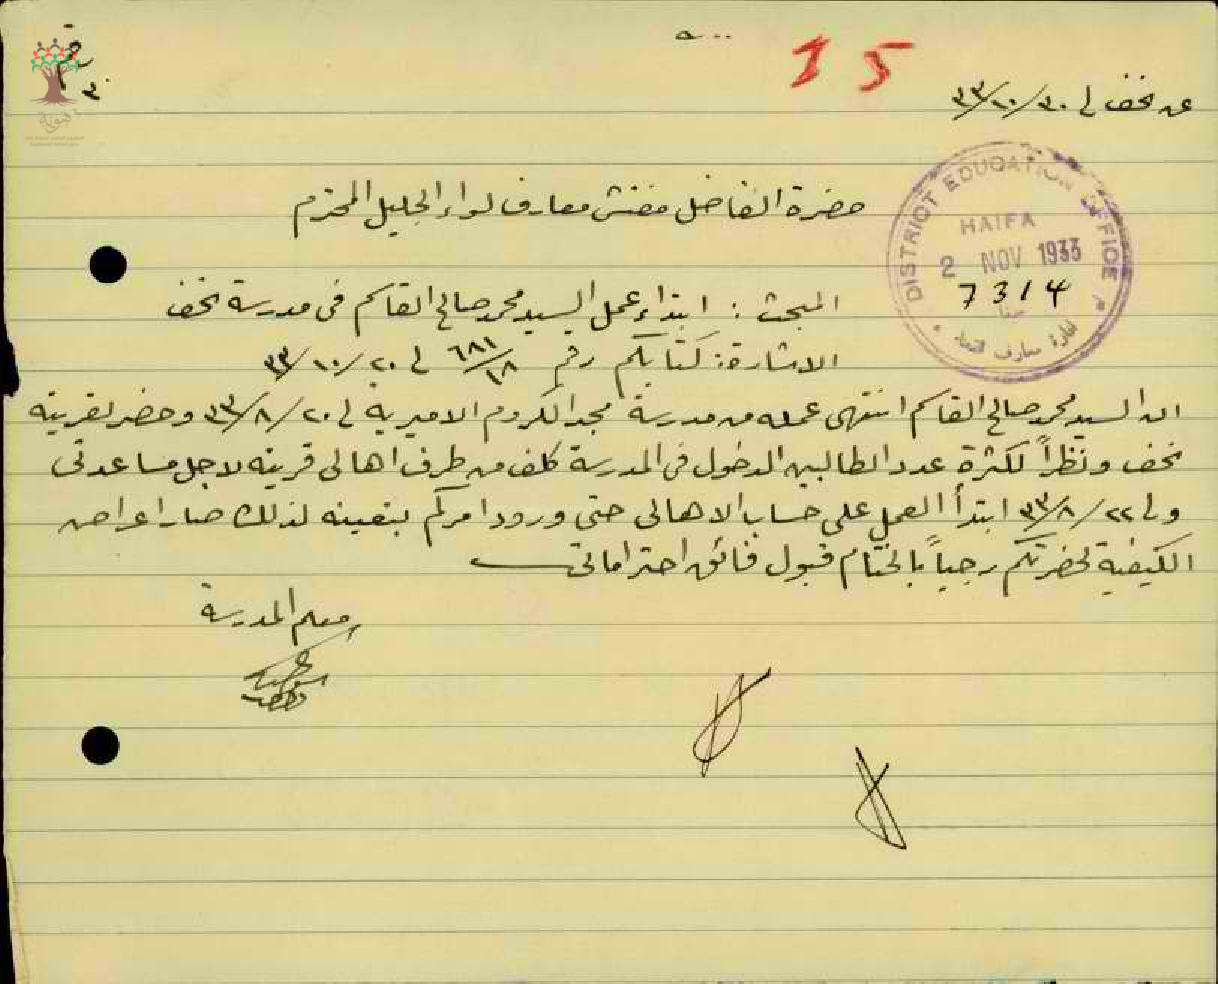 15
عن نحف في ٣٠/١٠/٣٣
DISTRICT EDUCATION OFFICE
HAIFA
2 NOV 1933
7314
ادارة معارف
حضرة الفاضل مفتش معارف لواء الجليل المحترم
المبحث : ابتداء عمل السيد محمد صالح القاسم في مدرسة نحف
الاشارة: كتابكم رقم ٦٨١/١٨ في ٢٠/١٠/٣٣
ان السيد محمد صالح القاسم انتهى عمله من مدرسة مجد الكروم الاميرية في ٢٠/٨/٣٣ وحضر لقريته
نحف ونظراً لكثرة عدد الطالبين الدخول في المدرسة كلف من طرف اهالي قريته لاجل مساعدتي
وفي ٢٢/٨/٣٣ ابتدأ العمل على حساب الاهالي حتى ورود امركم بتعيينه لذلك صار اعراض
الكيفية لحضرتكم رجياً بالختام قبول فائق احتراماتي
معلم المدرسة